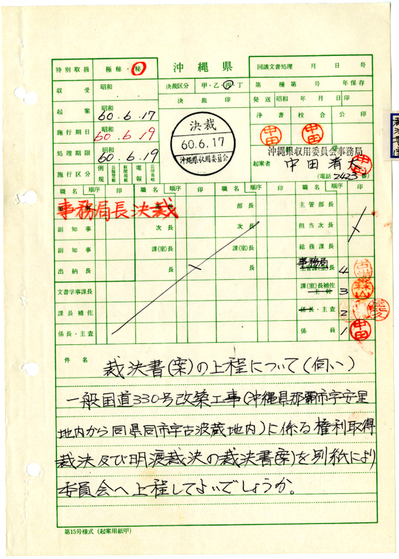 特別取扱 極秘・秘
沖縄県
回議文書処理 月 日 号
収受 昭和
決裁区分 甲・乙・丙・丁
第 種第 号 年保存
起案 昭和 60.6.17
決裁印
発送 昭和 年 月 日 印
施行期日 昭和 60.6.19
決裁
60.6.17
沖縄県収用委員会
浄書 校合 公印
中田 中田
処理期限 昭和 60.6.19
沖縄県収用委員会事務局
施行区分 例規
起案者 中田
(電話 2423 番)
職名 順序 印 職名 順序 印 職名 順序 印
事務局長決裁
部長 主管部長
副知事 次長 担当次長
副知事 課(室)長 総務課長
出納長 長 事務局長 4
文書学事課長 課(室)長補佐 3
課長補佐 係長・主査 2
係長・主査 係員 1 中田
件名 裁決書(案)の上程について(伺い)
一般国道330号改築工事(沖縄県那覇市字安里
地内から同県同市字古波蔵地内)に係る権利取得
裁決及び明渡裁決の裁決書(案)を別紙により
委員会へ上程してよいでしょうか。
第15号様式(起案用紙甲)